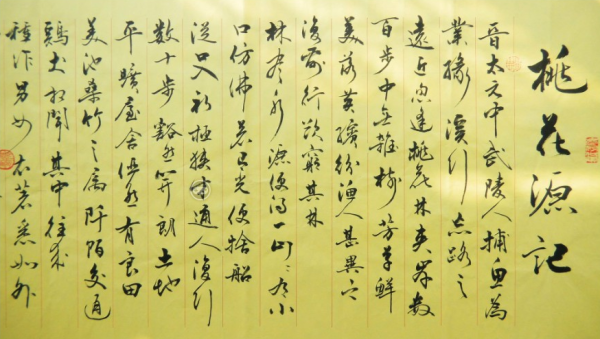 桃花源记
晋太元中武陵人捕鱼为
業缘溪行忘路之
遠近忽逢桃花林夹岸数
百步中無雜樹芳草鮮
美落英缤纷渔人甚異之
復前行欲窮其林
林尽水源便得一山山有小
口仿佛若有光便捨船
從口入初極狭才通人復行
数十步豁然開朗土地
平曠屋舍俨然有良田
美池桑竹之属阡陌交通
鷄犬相闻其中往来
種作男女衣着悉如外